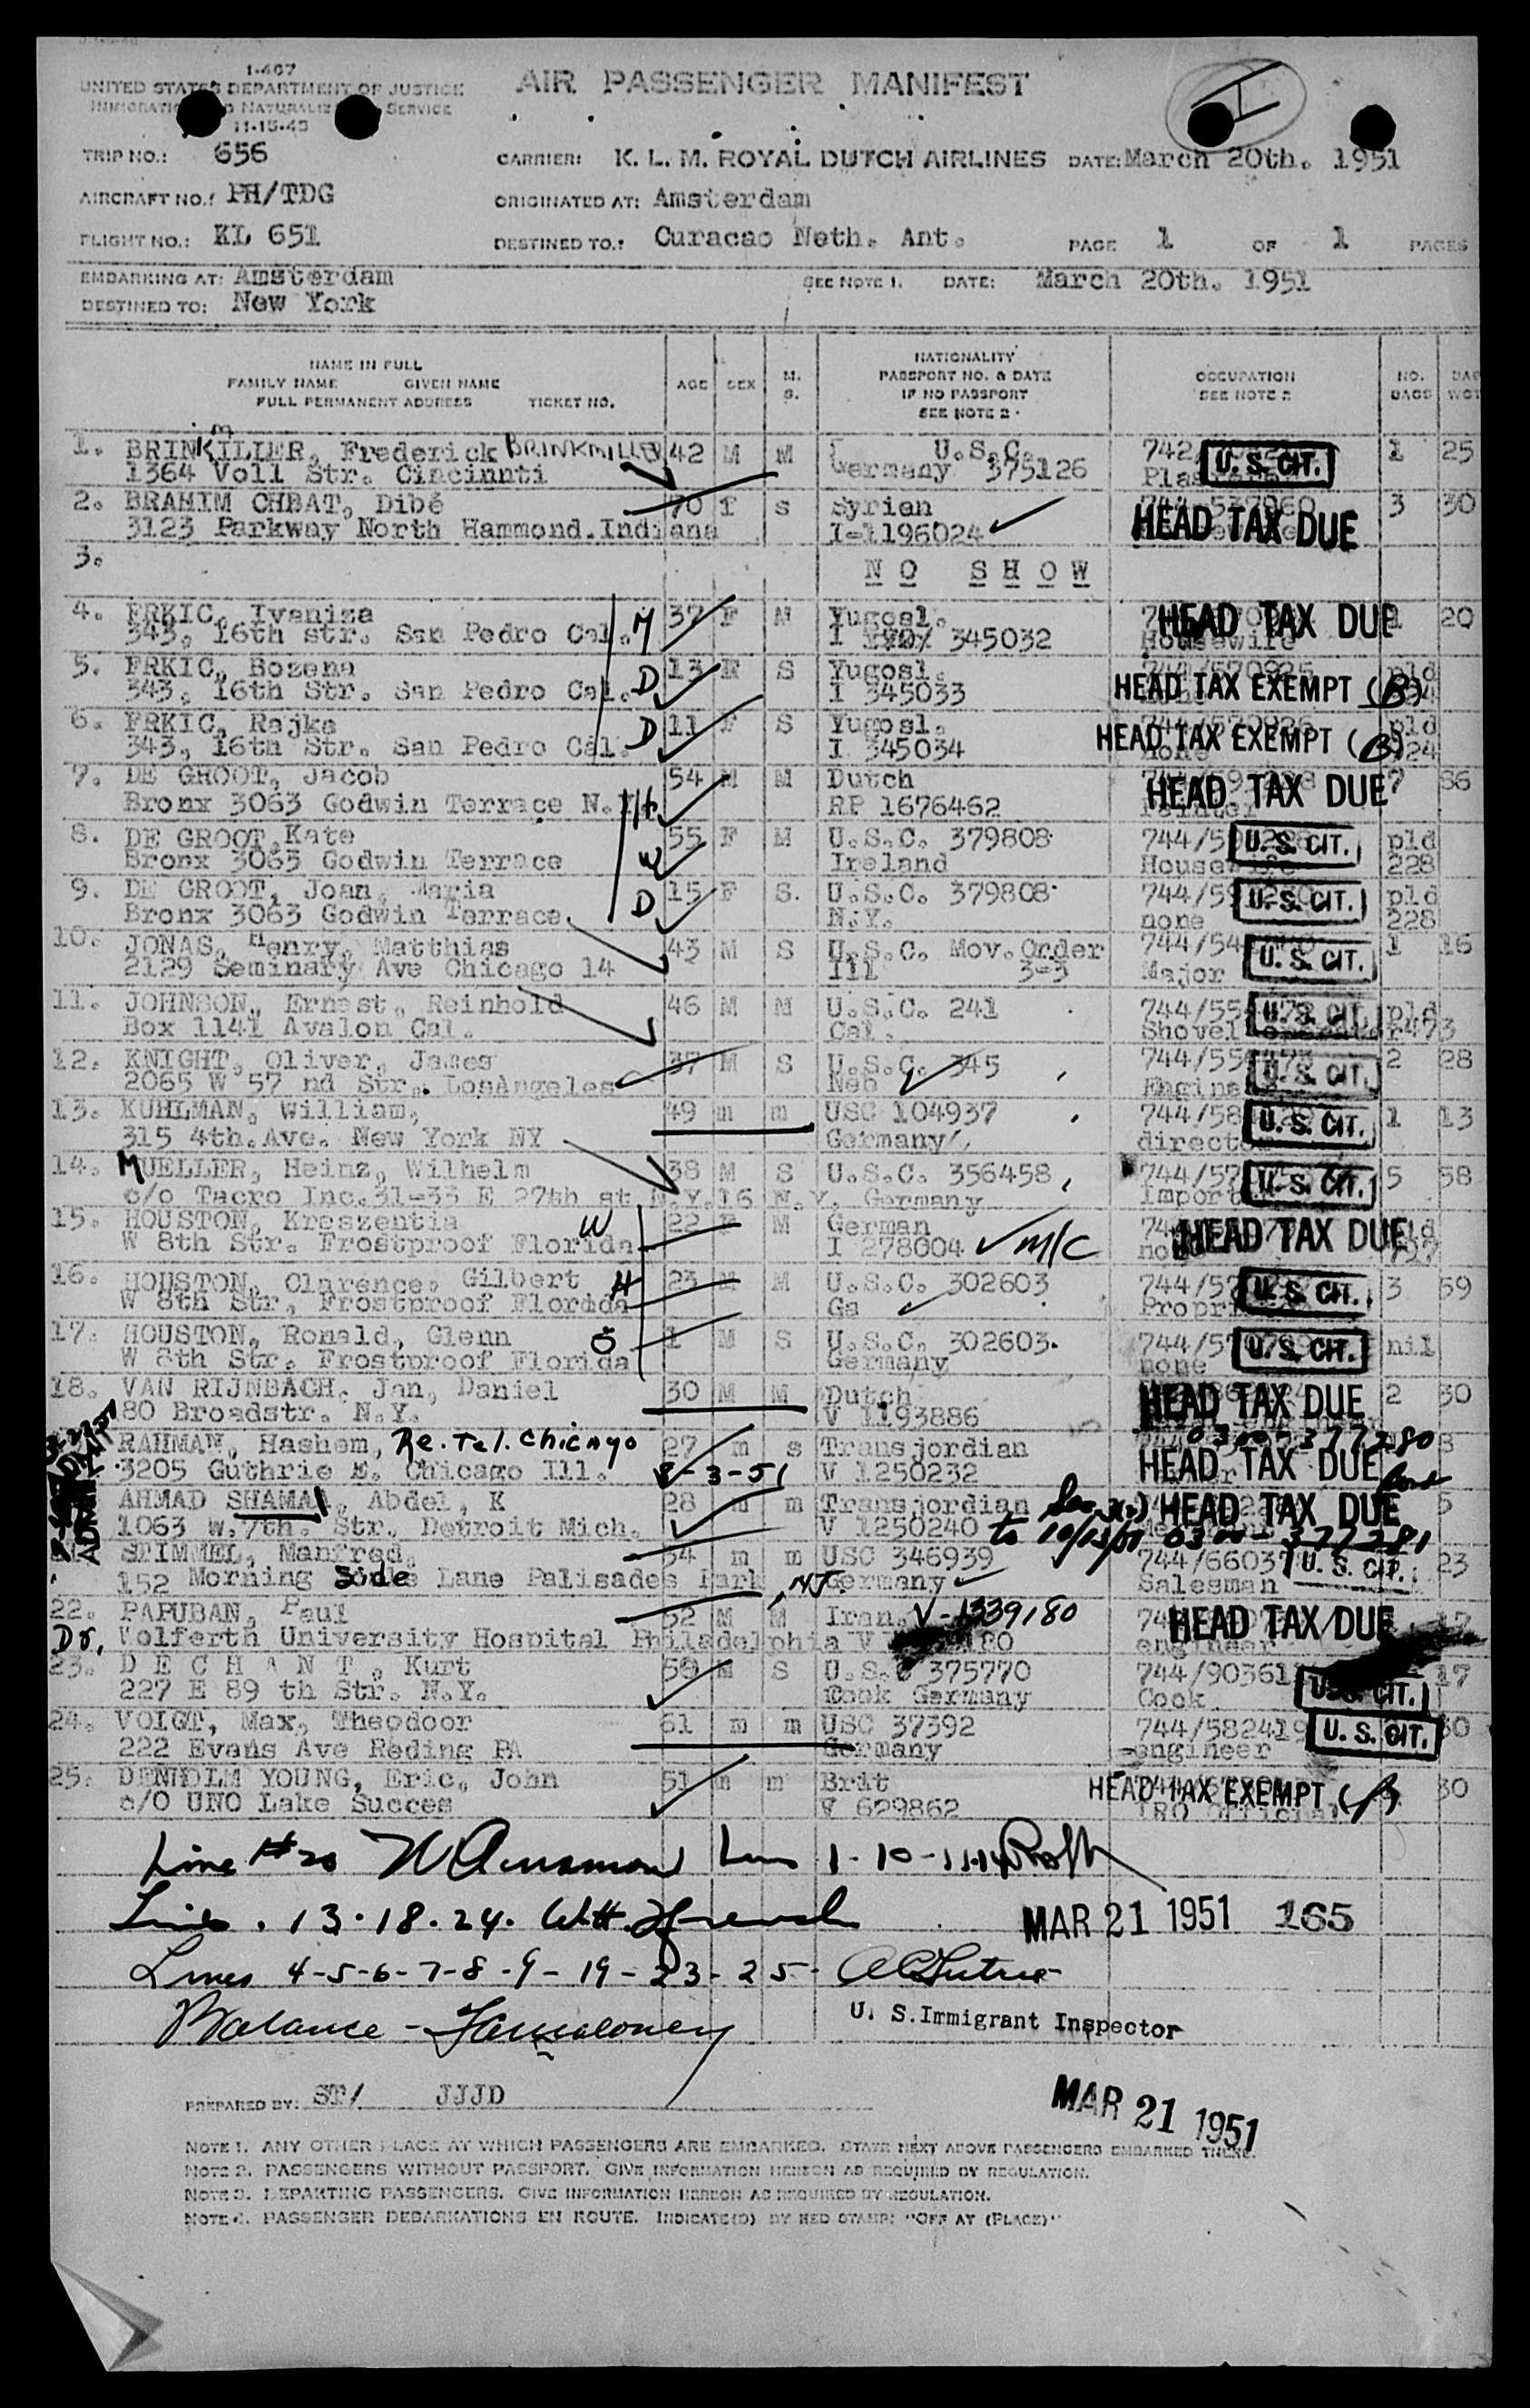 I-467
UNITED STATES DEPARTMENT OF JUSTICE
SERVICE
11-15-45
AIR PASSENGER MANIFEST
TRIP NO.: 656
CARRIER: K. L. M. ROYAL DUTCH AIRLINES DATE: March 20th. 1951
AIRCRAFT NO.: PH/TDG
ORIGINATED AT: Amsterdam
FLIGHT NO.: KL 651
DESTINED TO.: Curacao Neth. Ant.
PAGE 1 OF 1 PAGES
EMBARKING AT: Amsterdam
SEE NOTE 1. DATE: March 20th. 1951
DESTINED TO: New York
NAME IN FULL
FAMILY NAME GIVEN NAME
FULL PERMANENT ADDRESS TICKET NO.
AGE SEX M. S.
NATIONALITY
PASSPORT NO. & DATE
IF NO PASSPORT
SEE NOTE 2
OCCUPATION
SEE NOTE 2
NO. BAGS
1. Frederick BRINKMILLER 42 M M U.S.C. 742 U.S. CIT. 1 25
1364 Voll Str. Cincinnti Germany 375126
2. BRAHIM CHBAT, Dibé 70 f s Syrian 3 30
3123 Parkway North Hammond.Indiana I-1196024 HEAD TAX DUE
3. NO SHOW
4. FRKIC, Ivaniza M 37 F M Yugosl. HEAD TAX DUE 20
343, 16th str. San Pedro Cal. I 345032 Housewife
5. FRKIC, Bozena D 13 F S Yugosl. pld
343, 16th Str. San Pedro Cal. I 345033 HEAD TAX EXEMPT (B)
6. FRKIC, Rajka D 11 F S Yugosl. pld
343, 16th Str. San Pedro Cal. I 345034 none HEAD TAX EXEMPT (B)
7. DE GROOT, Jacob 54 M M Dutch HEAD TAX DUE 7
Bronx 3063 Godwin Terrace N.Y. H RP 1676462
8. DE GROOT, Kate W 55 F M U.S.C. 379808 U.S. CIT. pld
Bronx 3063 Godwin Terrace Ireland 228
9. DE GROOT, Joan, Maria D 15 F S. U.S.C. 379808 U.S. CIT. pld
Bronx 3063 Godwin Terrace N.Y. none 228
10. JONAS, Henry, Matthias 43 M S U.S.C. Mov.Order U.S. CIT. 1 16
2129 Seminary Ave Chicago 14 Ill 3-3 Major
11. JOHNSON, Ernest, Reinhold 46 M M U.S.C. 241 U.S. CIT. pld
Box 1141 Avalon Cal. Cal. Shovel
12. KNIGHT, Oliver, James 37 M S U.S.C. 345 U.S. CIT. 2 28
2065 W 57 nd Str. LosAngeles Neb
13. KUHLMAN, William, 49 m m USC 104937 744/58 U.S. CIT. 1 13
315 4th.Ave. New York NY Germany
14. MUELLER, Heinz, Wilhelm 38 M S U.S.C. 356458 744/57 U.S. CIT. 5 58
c/o Tacro Inc.31-33 E 27th st N.Y.16 N.Y. Germany Import
15. HOUSTON, Kreszentia W 22 F M German HEAD TAX DUE
W 8th Str. Frostproof Florida I 278004 M/C
16. HOUSTON, Clarence, Gilbert H 23 M M U.S.C. 302603 744/57 U.S. CIT. 3 59
W 8th Str, Frostproof Florida Ga
17. HOUSTON, Ronald, Glenn S 1 M S U.S.C. 302603 744/57 U.S. CIT. nil
W 8th Str. Frostproof Florida Germany none
18. VAN RIJNBACH, Jan, Daniel 30 M M Dutch HEAD TAX DUE 2 30
80 Broadstr. N.Y. V 1193886
RAHMAN, Hashem, Re. Tel. Chicago 27 m s Transjordian 0300-377280
3205 Guthrie E. Chicago Ill. 8-3-51 V 1250232 HEAD TAX DUE
AHMAD SHAMAI, Abdel, K 28 m m Transjordian HEAD TAX DUE 5
1063 w.7th. Str. Detroit Mich. V 1250240 to 10/13/51 0300-377281
STIMMEL, Manfred, 34 m m USC 346939 U.S. CIT. 23
152 Morning Side Lane Palisades Park, NJ Germany Salesman
22. PAPUBAN, Paul 52 M M Iran. V-1339180 HEAD TAX DUE
Dr. Wolferth University Hospital Philadelphia engineer
23. DECHANT, Kurt 50 M S U.S.C 375770 744/90361 U.S. CIT. 17
227 E 89 th Str. N.Y. Cook Germany Cook
24. VOIGT, Max, Theodoor 61 m m USC 37392 744/582419 U.S. CIT.
222 Evans Ave Reding PA Germany engineer
25. DENHOLM YOUNG, Eric, John 51 m m Brit HEAD TAX EXEMPT
c/O UNO Lake Succes V 629862 IRO Official
Line #20
Lines. 13.18.24.
MAR 21 1951 165
Lines 4-5-6-7-8-9-19-23-25-
Balance -
U. S. Immigrant Inspector
PREPARED BY: ST/ JJJD
MAR 21 1951
NOTE 1. ANY OTHER PLACE AT WHICH PASSENGERS ARE EMBARKED. STATE NEXT ABOVE PASSENGERS EMBARKED THERE.
NOTE 2. PASSENGERS WITHOUT PASSPORT. GIVE INFORMATION HEREON AS REQUIRED BY REGULATION.
NOTE 3. DEPARTING PASSENGERS. GIVE INFORMATION HEREON AS REQUIRED BY REGULATION.
NOTE 4. PASSENGER DEBARKATIONS EN ROUTE. INDICATE(D) BY RED STAMP: "OFF AT (PLACE)"